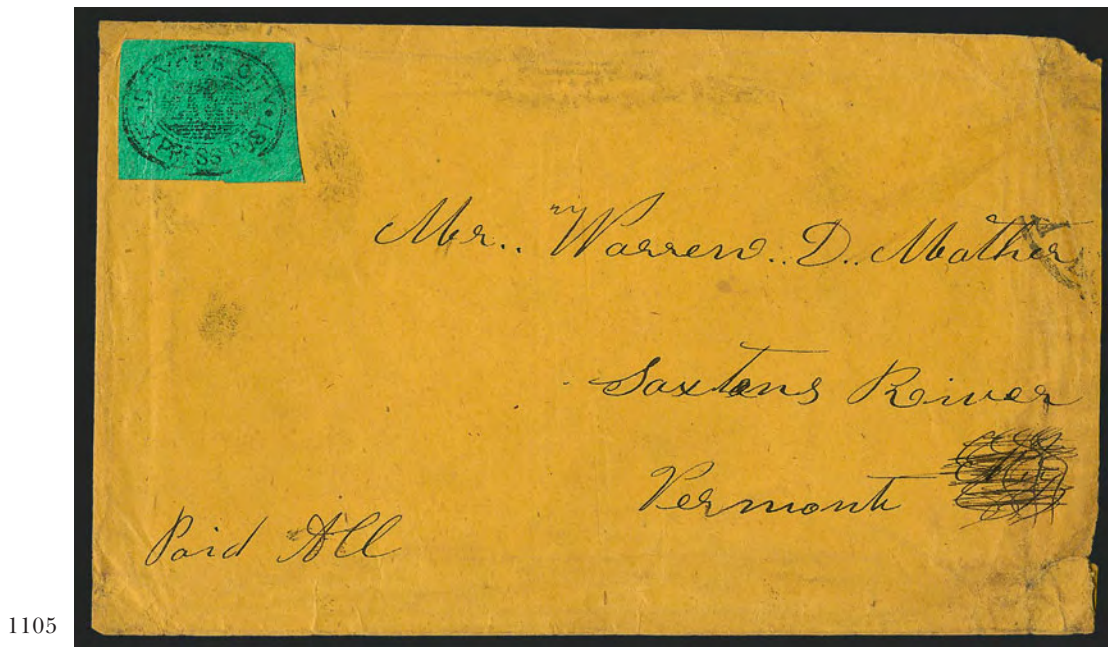 BOYCE'S CITY
EXPRESS POST
Mr.. Warren.. D.. Mather
Saxtons River
Vermont
Paid All
1105